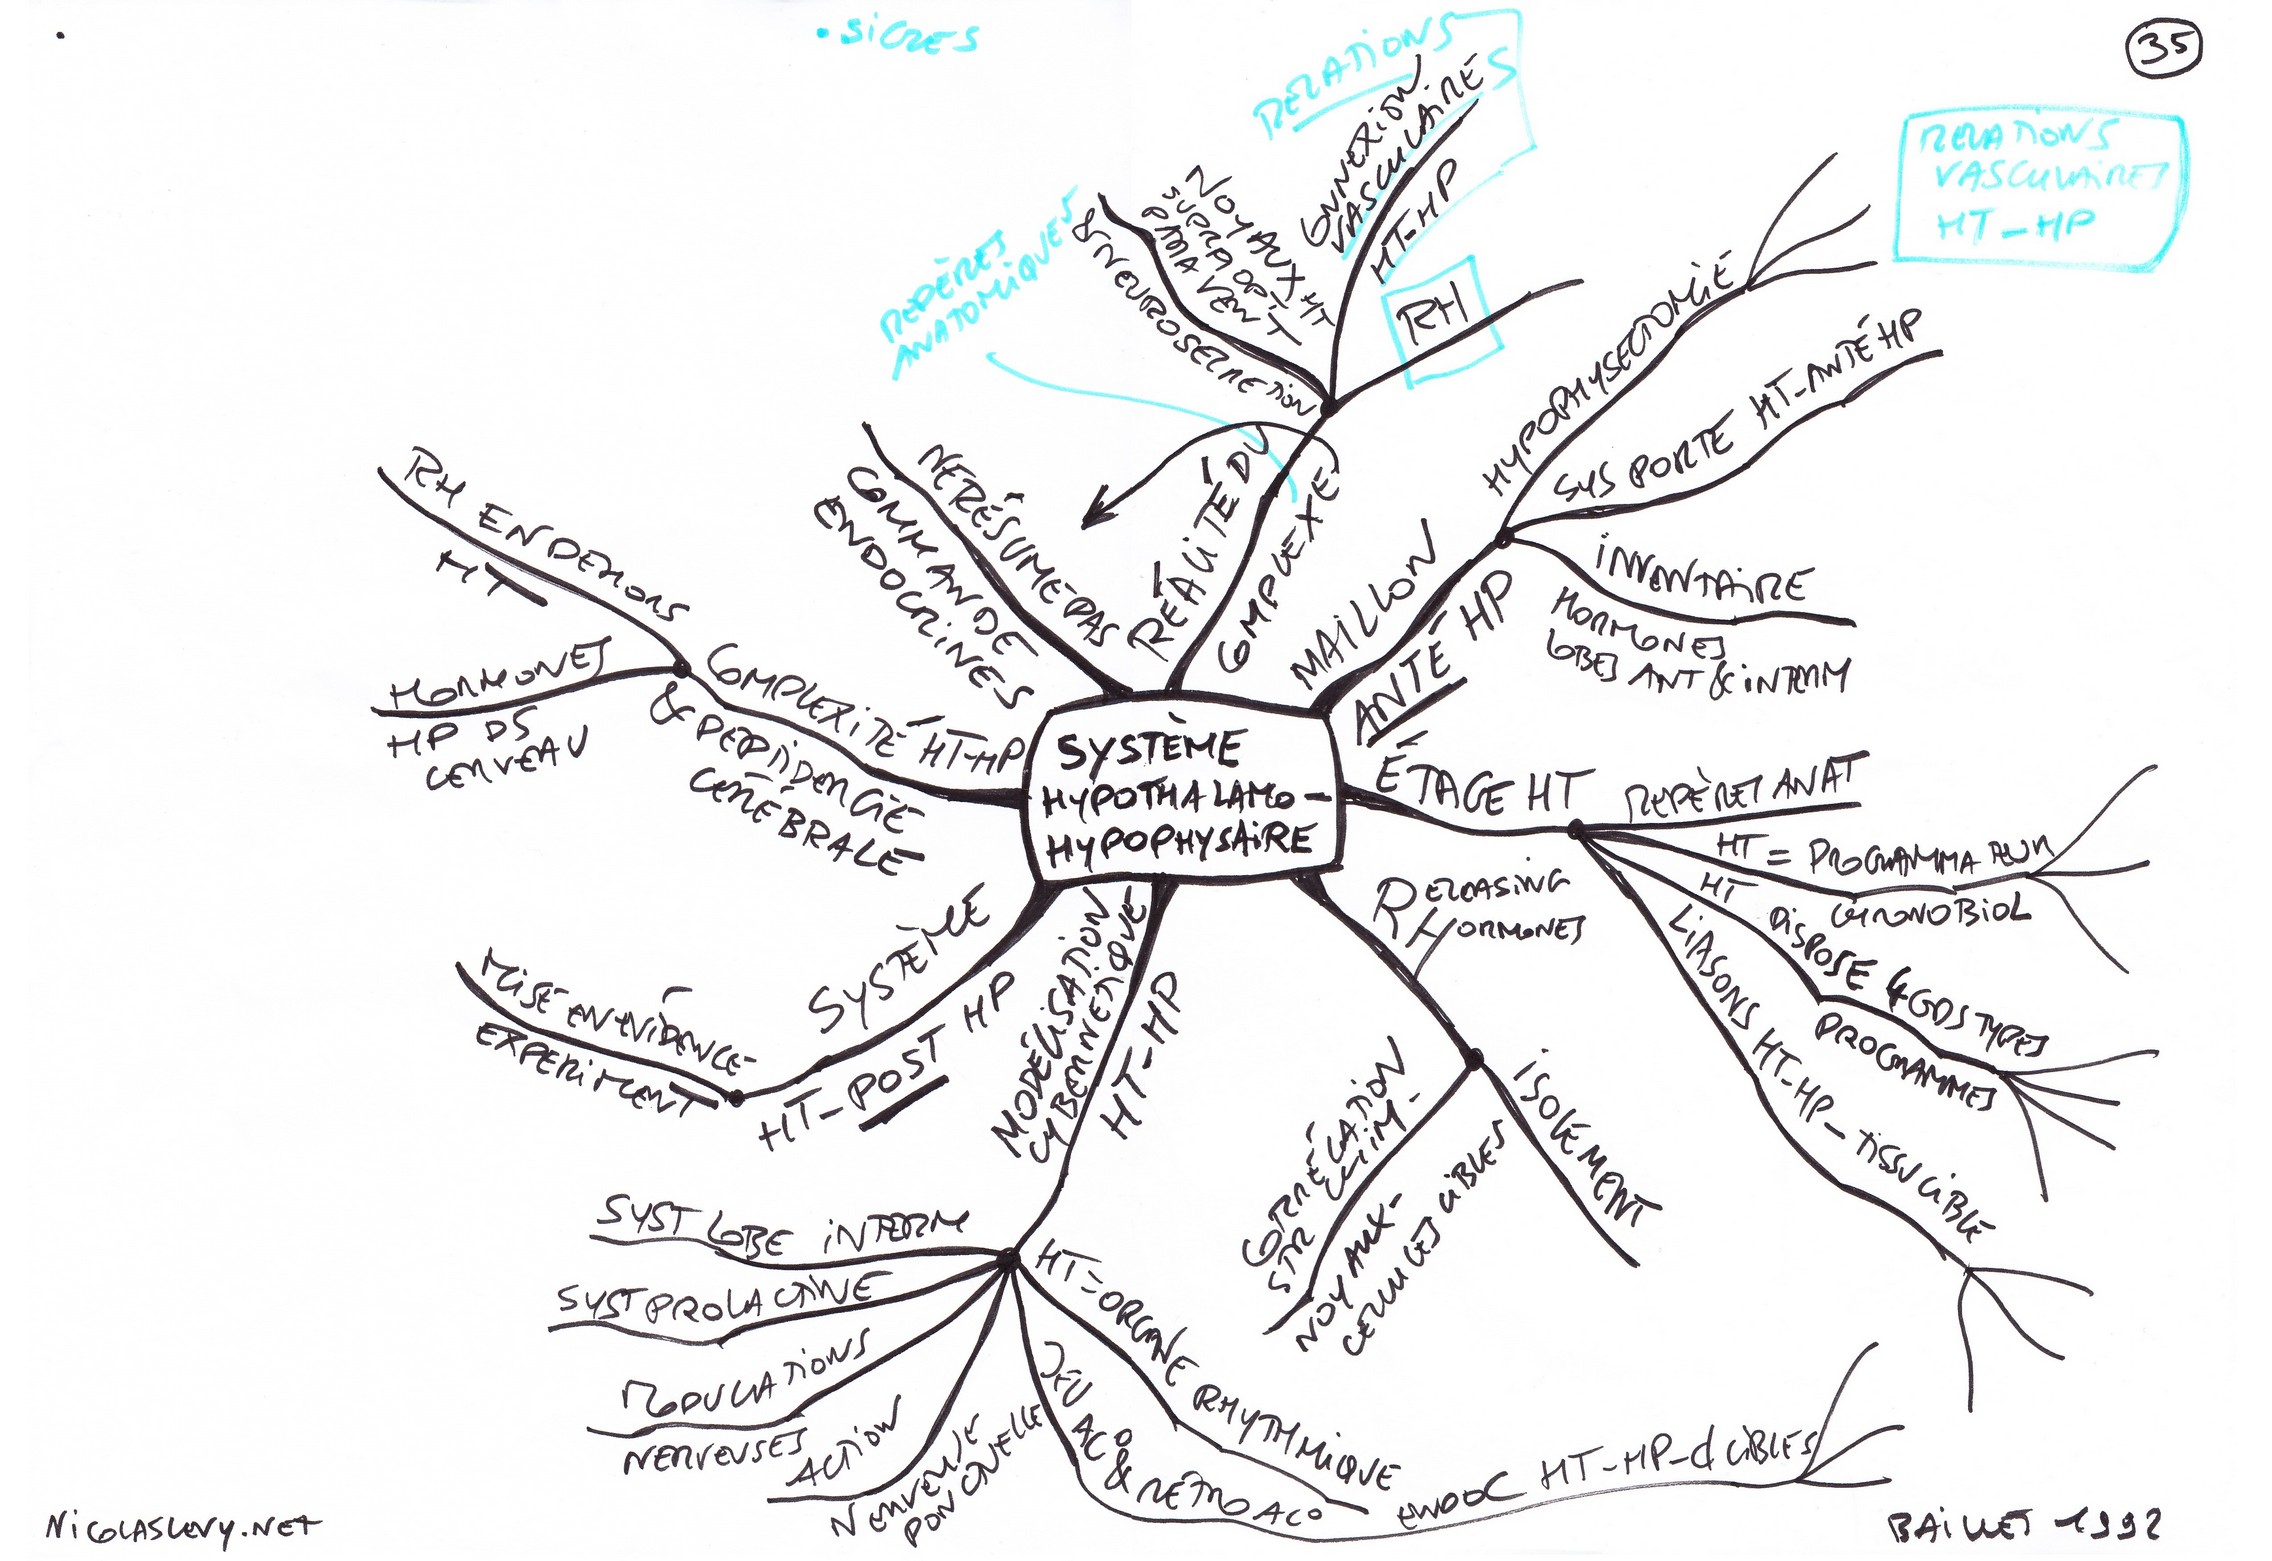 35
RELATIONS
VASCULAIRES
HT-HP
REPÈRES
ANATOMIQUES
RELATIONS
CONNEXION
VASCULAIRES
HT-HP
RH
NOYAUX HT
SUPRA OPT
PARA VENT
& NEUROSECRETION
RÉALITÉ DU
COMPLEXE
HYPOPHYSECTOMIE
SYS PORTE HT-ANTÉHP
INVENTAIRE
HORMONES
LOBES ANT & INTERM
MAILLON
ANTÉ HP
NE RÉSUME PAS
COMMANDE
ENDOCRINES
RH EN DEHORS
HT
HORMONES
HP DS
CERVEAU
COMPLEXITÉ HT-HP
& PEPTIDERGIE
CÉRÉBRALE
SYSTÈME
HYPOTHALAMO-
HYPOPHYSAIRE
ÉTAGE HT
REPÈRES ANAT
HT = PROGRAMMATEUR
CHRONOBIOL
HT DISPOSE 4 GDS TYPES
PROGRAMMES
LIASONS HT-HP-TISSU CIBLE
RELEASING
HORMONES
ISOLEMENT
CORRÉLATION
STR CHIM-
NOYAUX-
CELLULES CIBLES
SYSTÈME
HT-POST HP
MISE EN ÉVIDENCE
EXPERIMENT
MODÉLISATION
CYBERNÉTIQUE
HT-HP
SYST LOBE INTERM
SYST PROLACTINE
MODULATIONS
NERVEUSES
ACTION
NERVEUSE
PONCTUELLE
HT=ORGANE RHYTHMIQUE
JEU ACO & RÉTRO ACO
ENDOC HT-HP-CIBLES
NICOLASLEVY.NET
BAILLET 1992